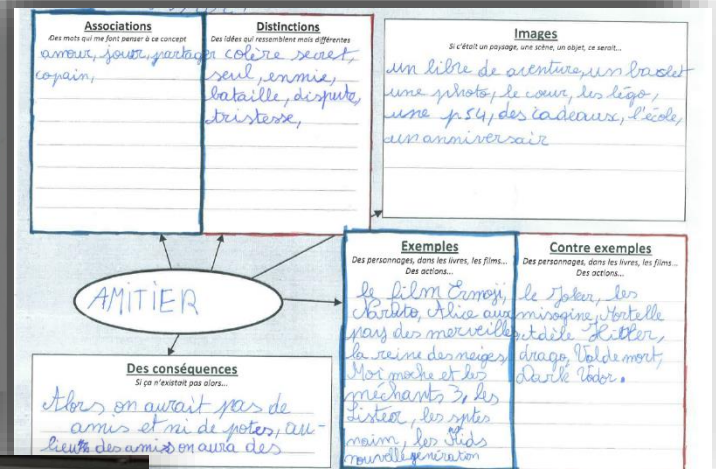 Associations
Des mots qui me font penser à ce concept
amour, jouer, partager
copain,
Distinctions
Des idées qui ressemblent mais différentes
colère secret,
seul, enmie,
bataille, dispute,
tristesse,
Images
Si c'était un paysage, une scène, un objet, ce serait...
un libre de aventure, un bracelet
une photo, le cœur, les légo,
une ps4, des cadeaux, l'école,
un anniversair
AMITIER
Exemples
Des personnages, dans les livres, les films...
Des actions...
le film Emoji,
Naruto, Alice aux
pays des merveilles
la reine des neiges
Moi moche et les
méchants 3, les
Sisteor, les spts
naim, les Kids
nouvelle génération
Contre exemples
Des personnages, dans les livres, les films...
Des actions...
le Joker, les
misogine, Mortelle
Adèle Hitler,
drago, Valdemort,
Dark Vador.
Des conséquences
Si ça n'existait pas alors...
Alors on aurait pas de
amis et ni de potes, au-
lieux des amis on aura des